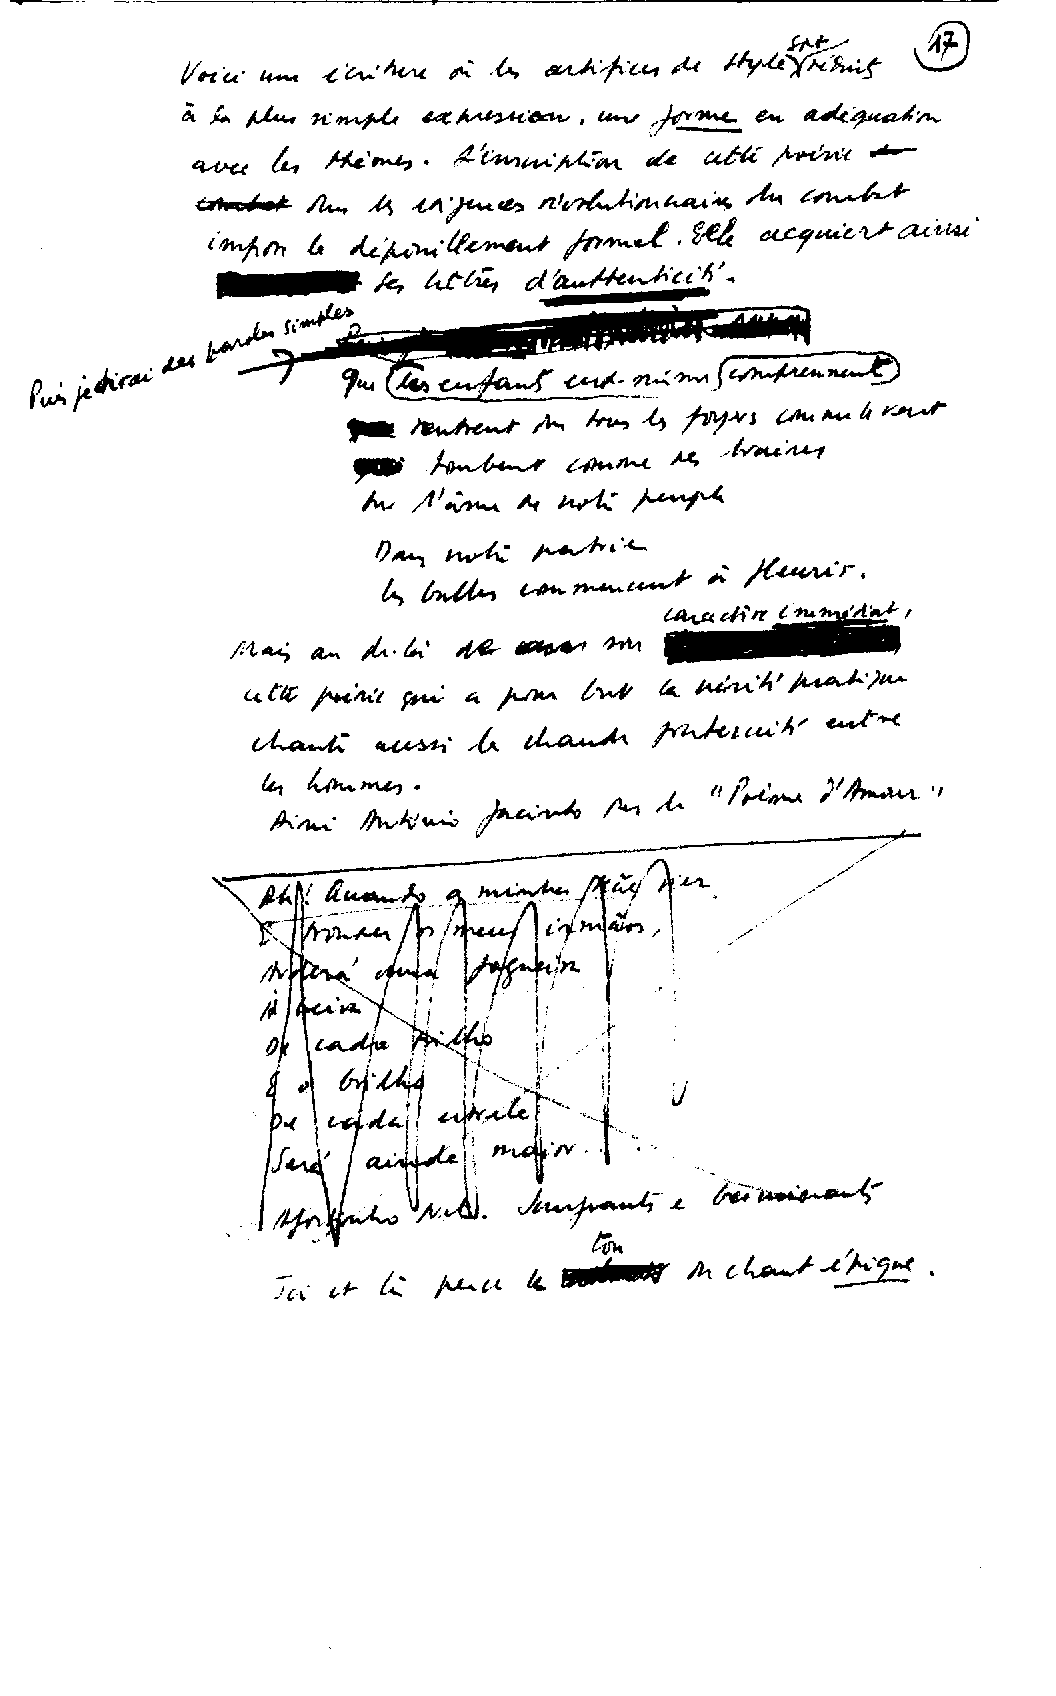 17
Voici une écriture où les artifices de style sont réduits
à la plus simple expression, une forme en adéquation
avec les thèmes. L'inscription de cette poésie de
combat dans les exigences révolutionnaires du combat
impose le dépouillement formel. Elle acquiert ainsi
ses lettres d'authenticité.
Puis je dirai des paroles simples
que les enfants eux-mêmes comprennent
rentrent dans tous les foyers comme le vent
tombent comme des braises
sur l'âme de notre peuple
Dans notre patrie
les balles commencent à fleurir.
Mais au de-là de son caractère immédiat,
cette poésie qui a pour but la vérité pratique
chante aussi la chaude fraternité entre
les hommes.
Ainsi António Jacinto dans le "Poème d'Amour"
Ah! Quando a minha mãe vier
E trouxer os meus irmãos,
Arderá uma fogueira
À beira
De cada trilho
E o brilho
De cada estrela
Será ainda maior.
Ici et là perce le ton du chant épique.